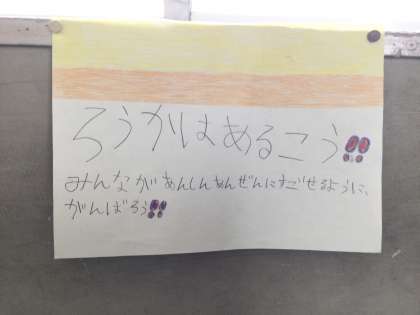 ろうかはあるこう!!
みんながあんしんあんぜんにすごせるように、
がんばろう!!